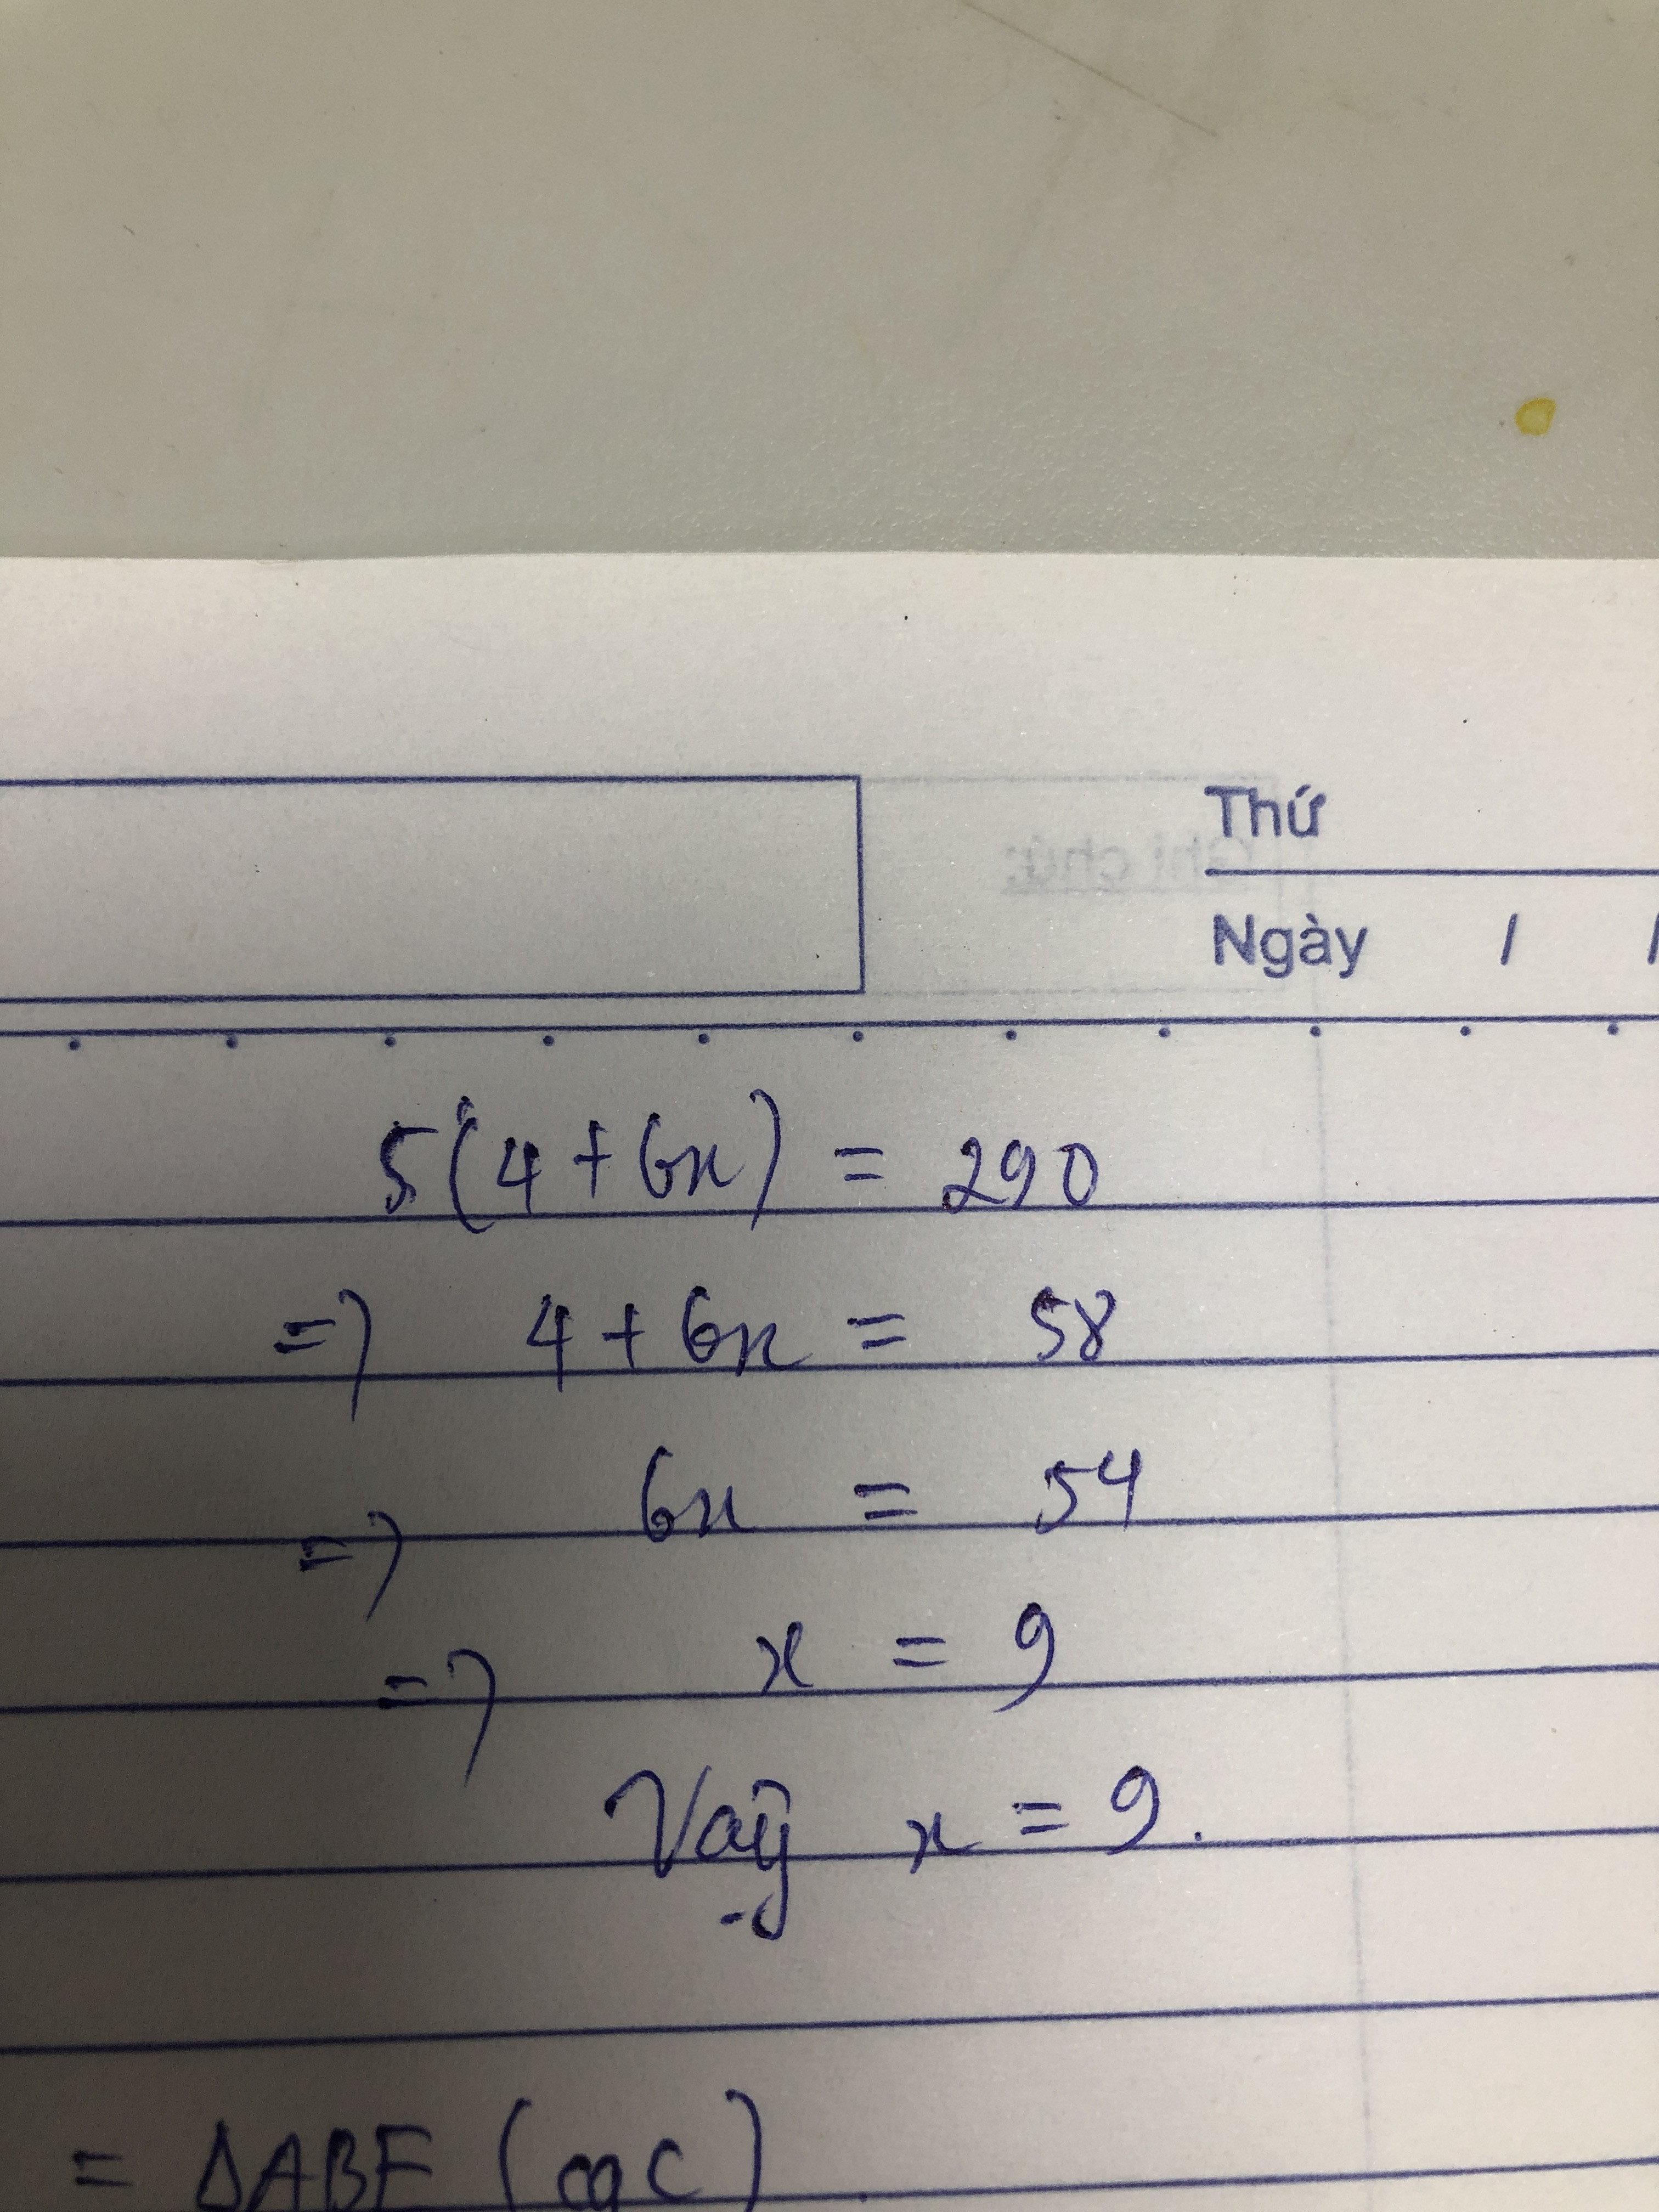 Thứ
Ghi chú:
Ngày / /
5(4 + 6x) = 290
=> 4 + 6x = 58
=> 6x = 54
=> x = 9
Vậy x = 9.
= ΔABF (cgc)